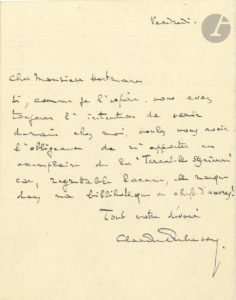 Vendredi.
Cher Monsieur Hartmann
Si, comme je l'espère, vous avez
toujours l'intention de venir
demain chez moi, voulez-vous avoir
l'obligeance de m'apporter un
exemplaire de la "Tarentelle Styrienne"
car, regrettable lacune, elle manque
dans ma bibliothèque à chefs d'œuvres!
Tout votre dévoué
Claude Debussy